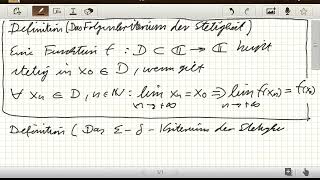 Definition (Das Folgenkriterium der Stetigkeit)
Eine Funktion f : D ⊂ ℂ → ℂ heißt
stetig in x₀ ∈ D, wenn gilt
∀ xₙ ∈ D, n ∈ ℕ: lim xₙ = x₀ ⇒ lim f(xₙ) = f(x₀)
n → +∞ n → +∞
Definition (Das ε-δ-Kriterium der Stetigke